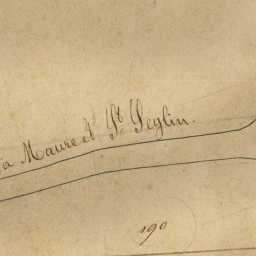 a Maure et St Seglin.
190